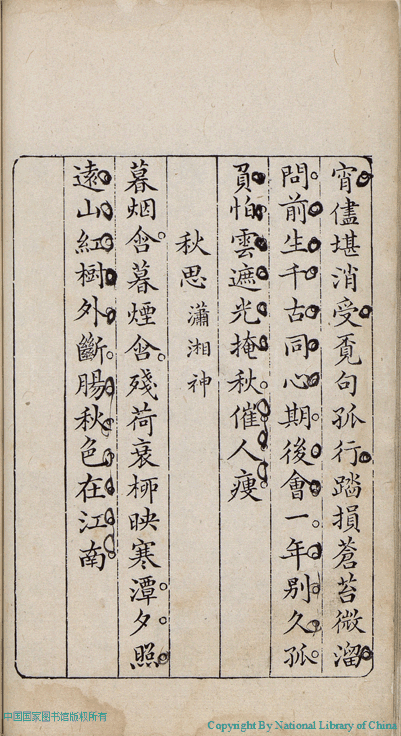 宵儘堪消受覔句孤行踏損蒼苔微溜
問前生千古同心期後會一年別久孤
負怕雲遮光掩秋催人痩
秋思 瀟湘神
暮烟含暮煙含殘荷衰栁映寒潭夕照
遠山紅樹外斷腸秋色在江南
中国国家图书馆版权所有
Copyright By National Library of China